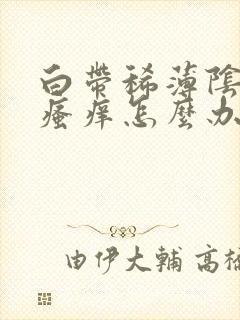 白帶稀薄陰
瘙痒怎麼办
由伊大輔 高橋